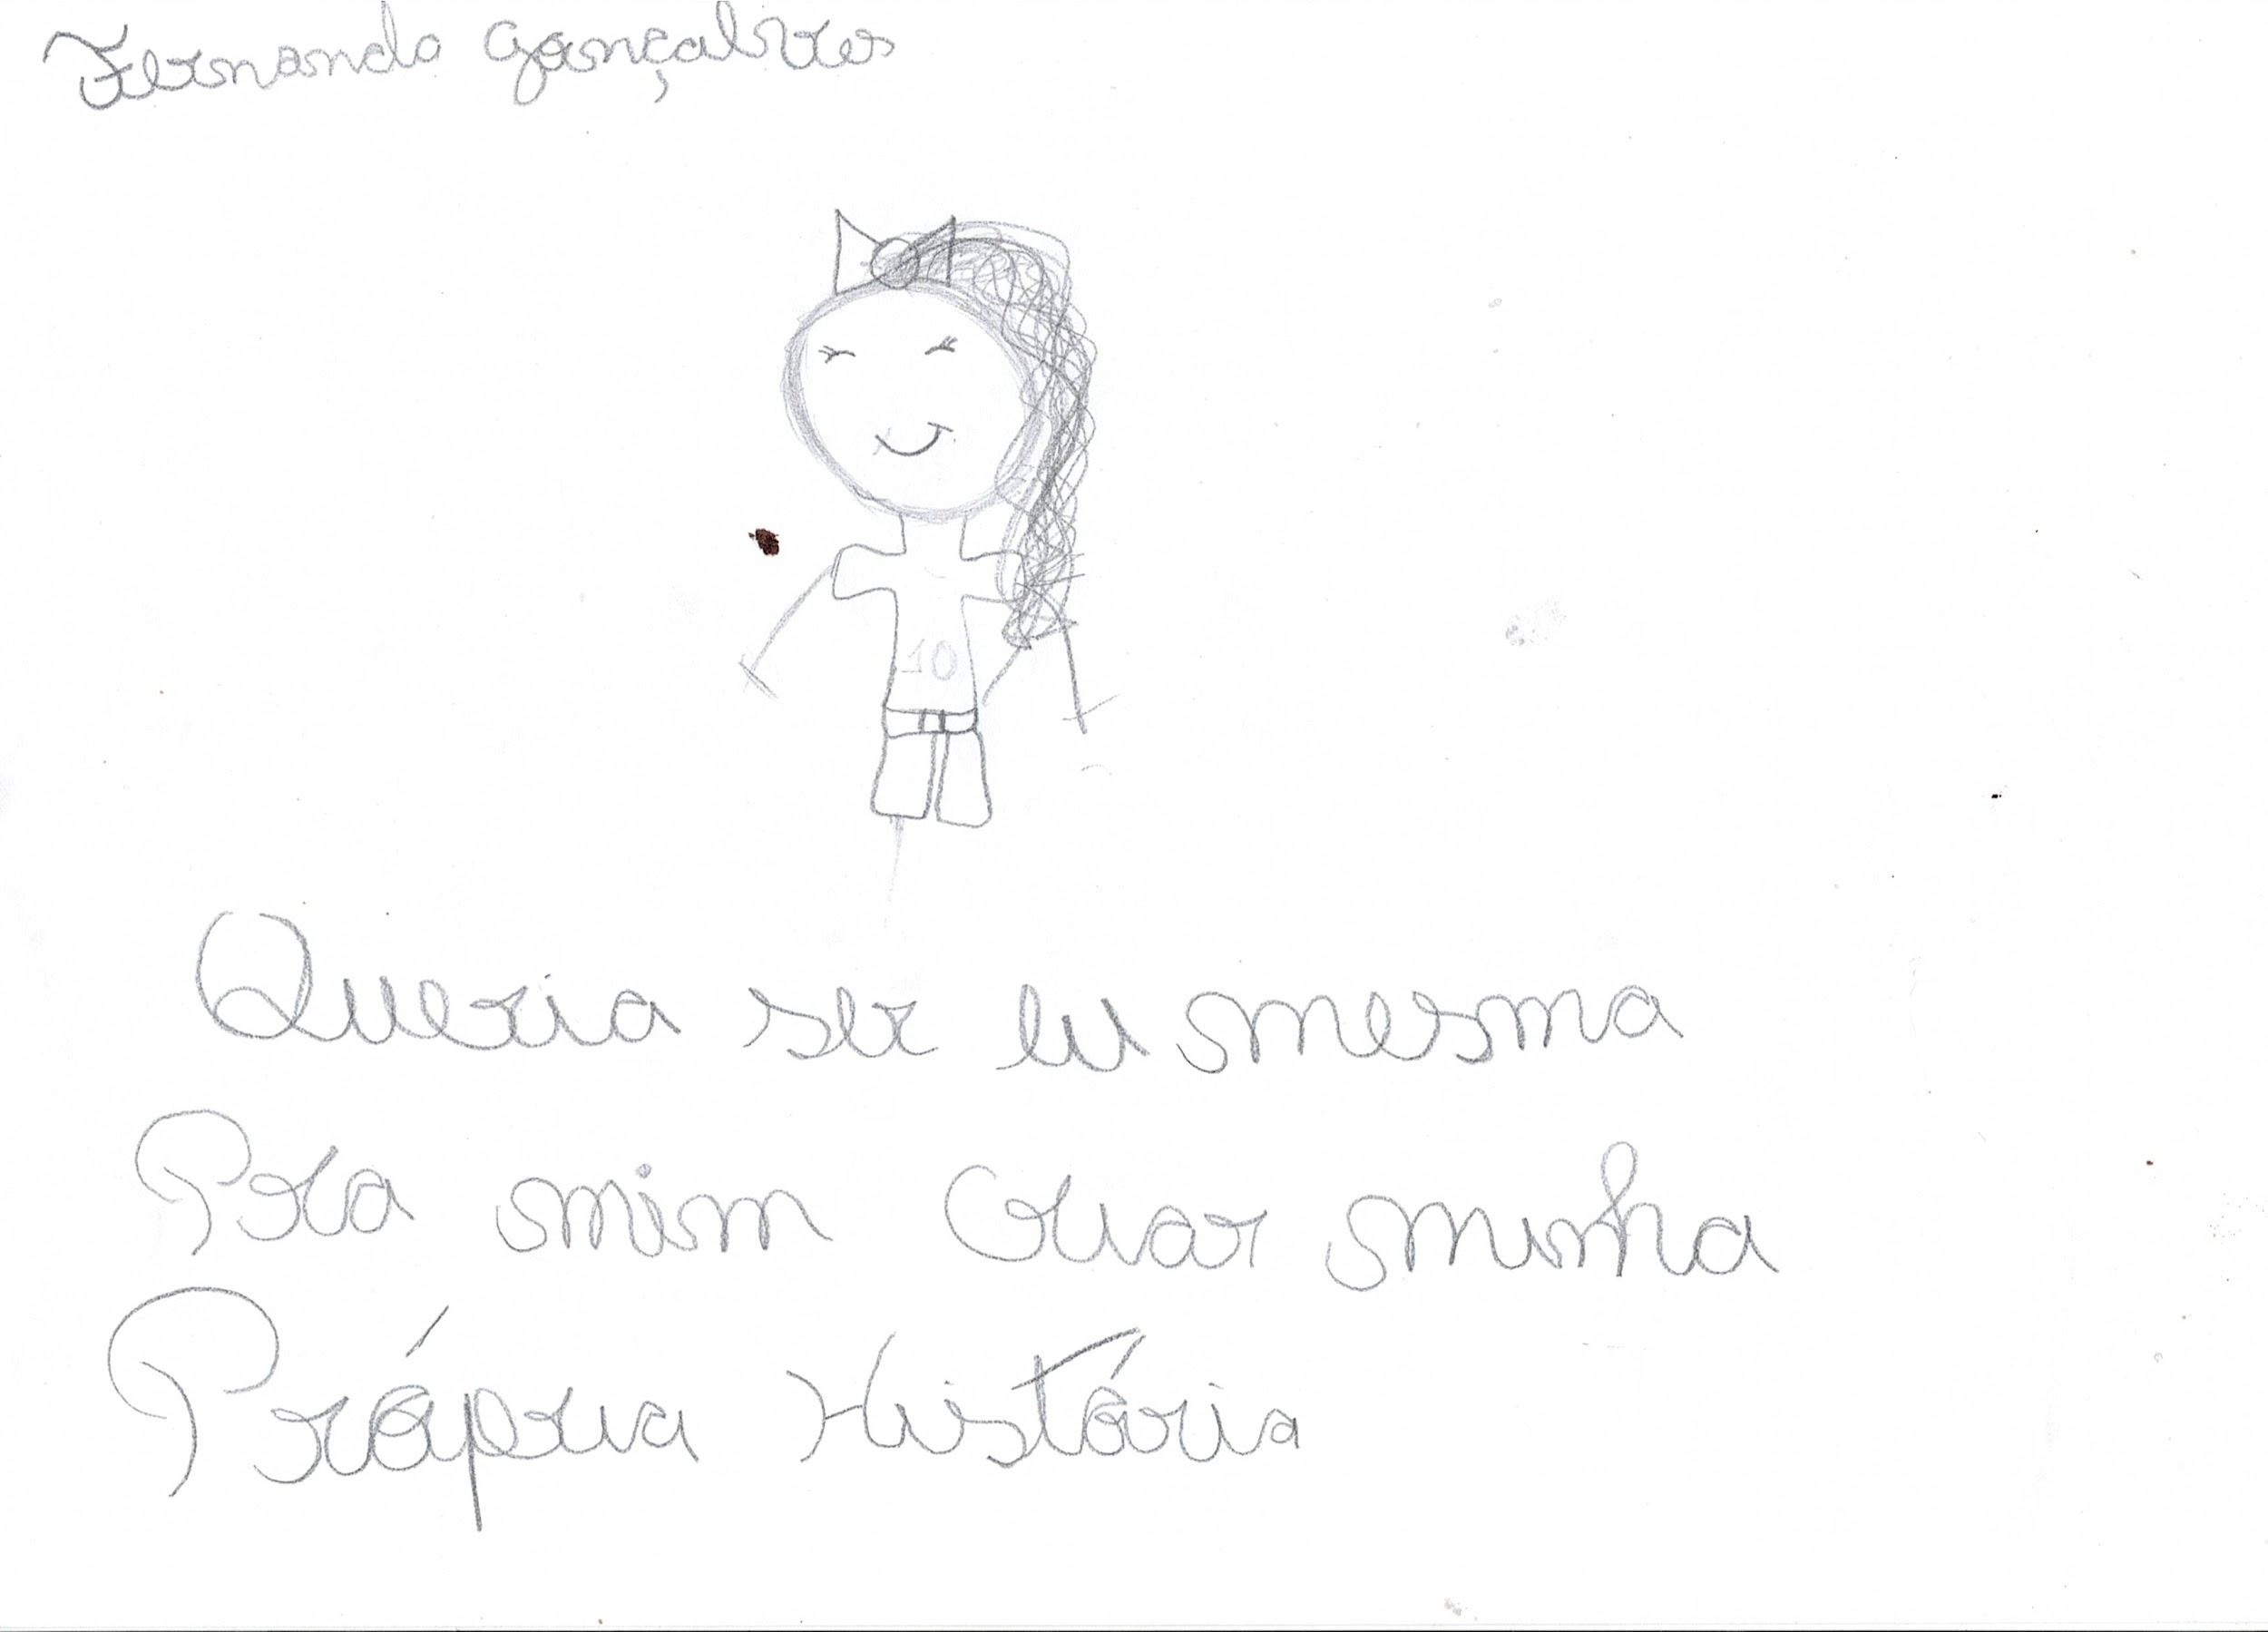 Fernanda Gonçalves
10
Queria ser eu mesma
Pra mim criar minha
Própria História